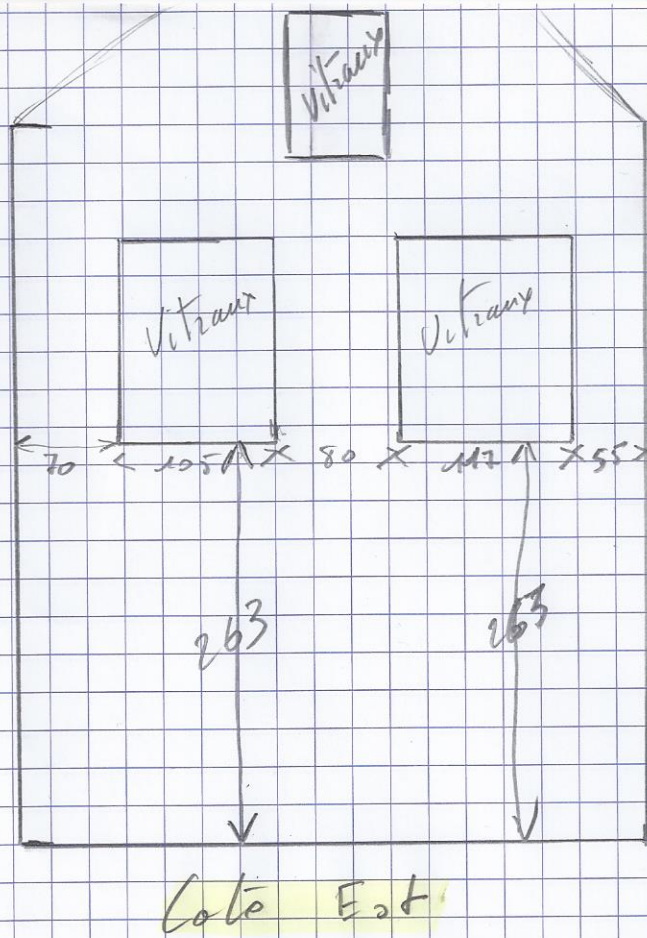 Vitraux
Vitraux Vitraux
70 105 80 117 55
263 263
Coté Est